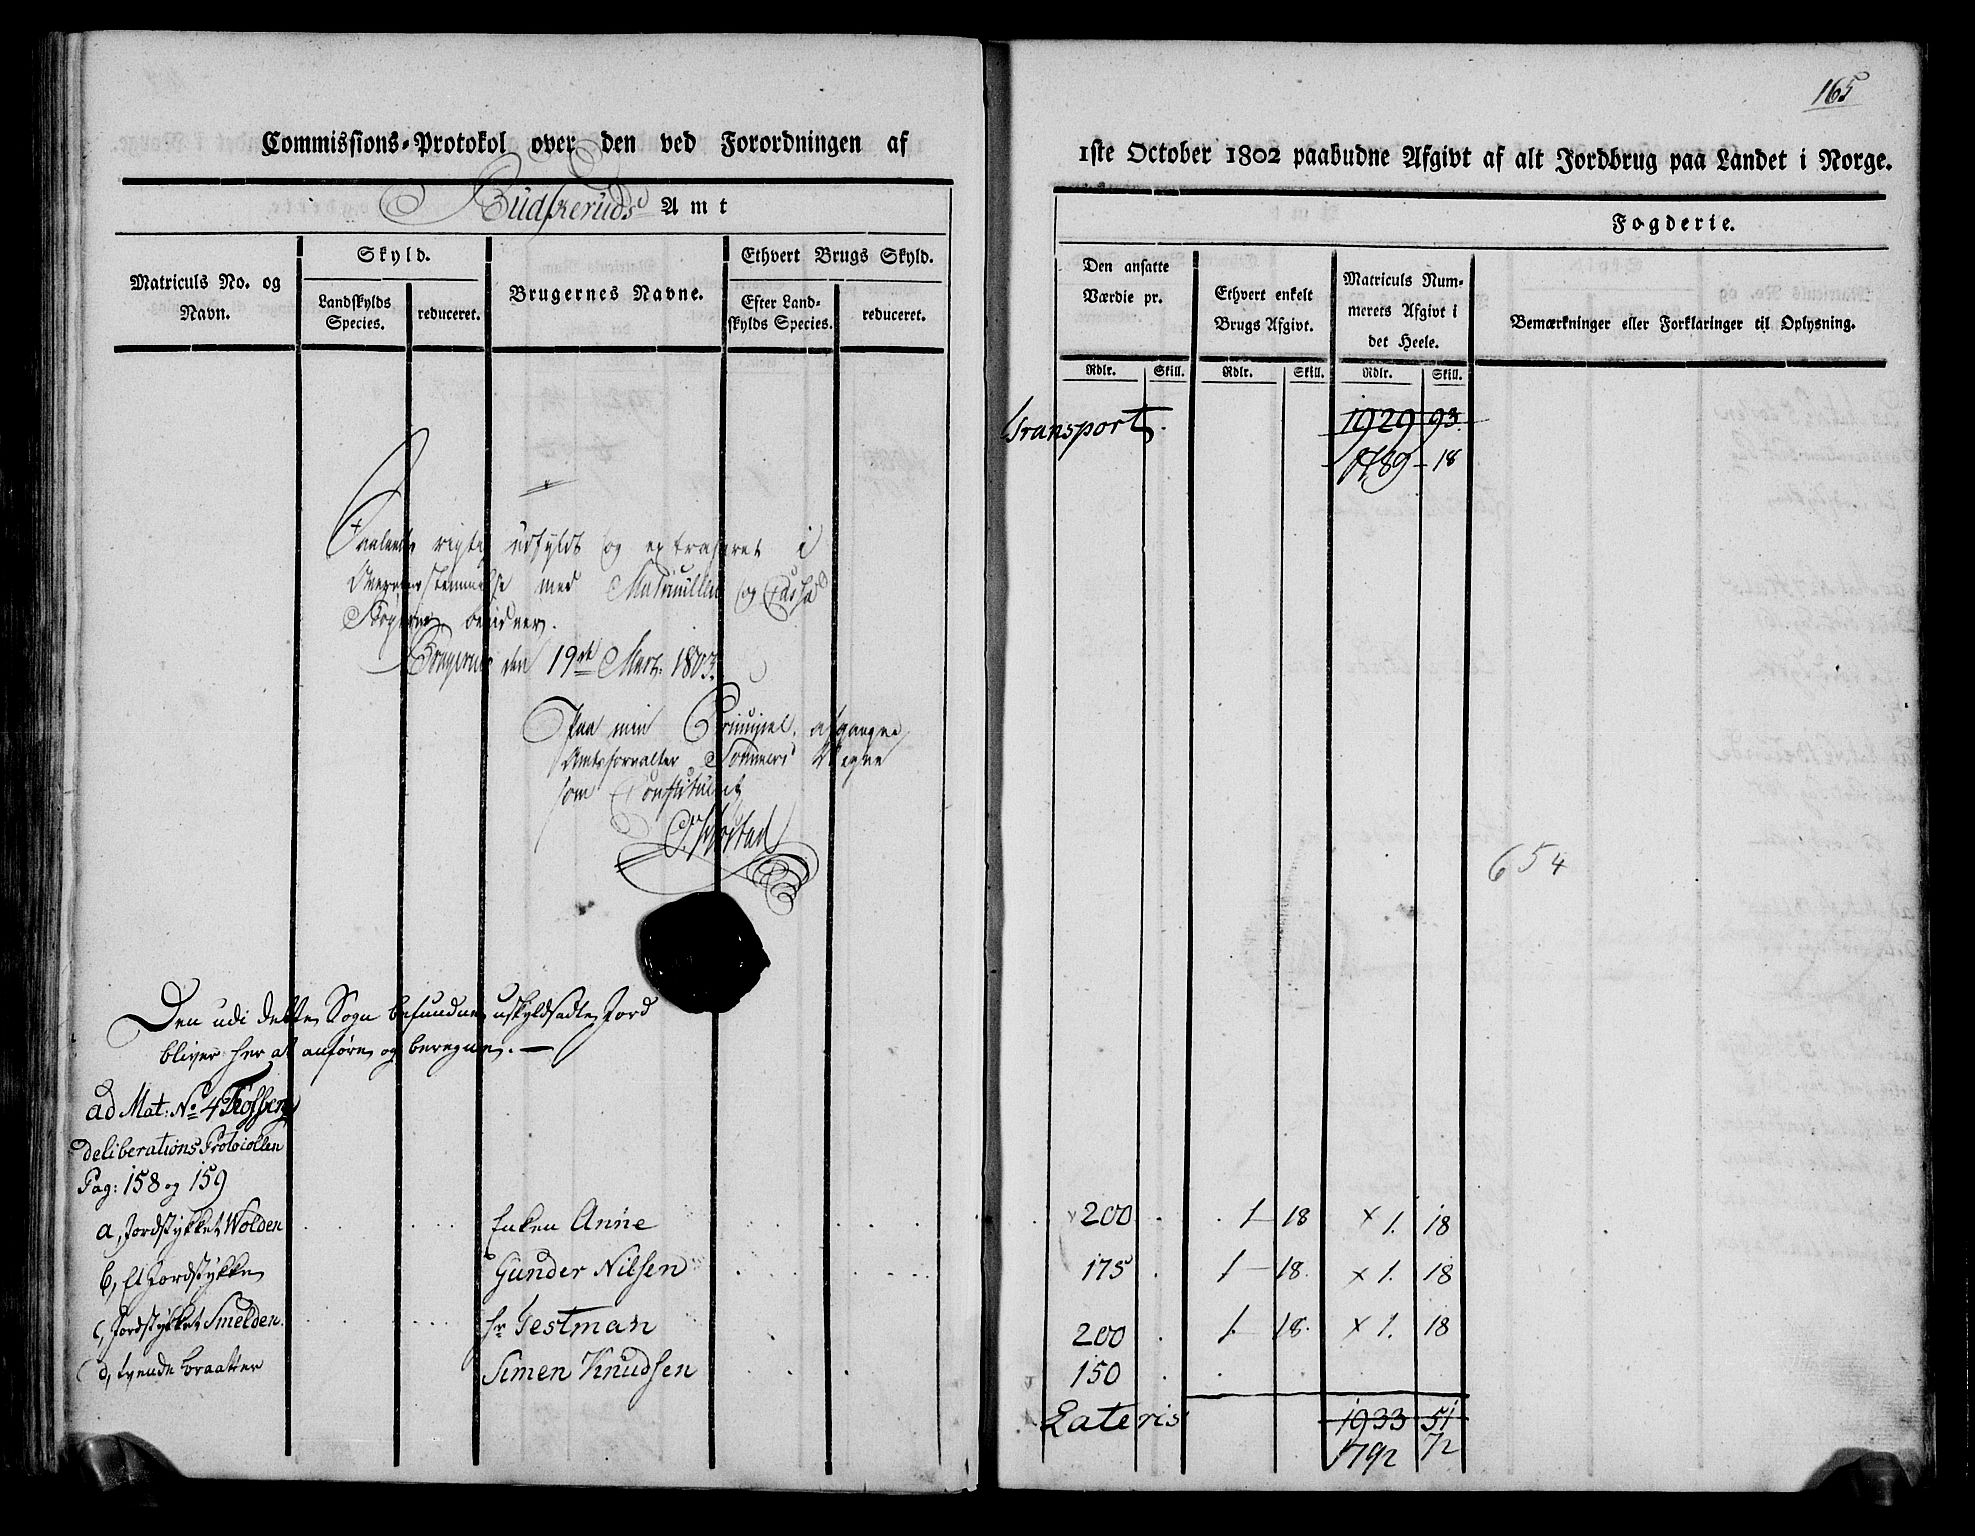 165
Commissions-Protokol over den ved Forordningen af
1ste October 1802 paabudne Afgivt af alt Jordbrug paa Landet i Norge.
Budskeruds Amt
Fogderie.
Matriculs No. og Navn.
Skyld.
Landskylds Species.
reduceret.
Brugernes Navne.
Ethvert Brugs Skyld.
Efter Landskylds Species.
reduceret.
Den ansatte Værdie pr.
Ethvert enkelt Brugs Afgivt.
Matriculs Nummerets Afgivt i det Heele.
Bemærkninger eller Forklaringer til Oplysning.
Rdlr. Skill. Rdlr. Skill. Rdlr. Skill.
Transport 1929 93.
1789 - 18
Saaledes rigtig udfyldt og extraheret i
Overeensstemmelse med Matriculen og
bevidner.
den 19de Marti 1803.
Paa min Principal, afgangne
Amtsforvalter Sommers Vegne
som Constitueret
654
Den udi dette Sogn befundne uskyldsadte Jord
bliver her at anføre og beregne. —
ad Mat: No 4
deliberations Protocollen
Pag: 158 og 159
a, Jordstykket Wolden Enken Anne 200 1 - 18 x 1. 18
b, Et Jordstykke Gunder Nilsen 175 1 - 18. x 1. 18
c, Jordstykket Smelden. hr Testman 200 1. 18. x 1. 18
d, tvende braatter Simen Knudsen 150
Lateris 1933 51
1792 72